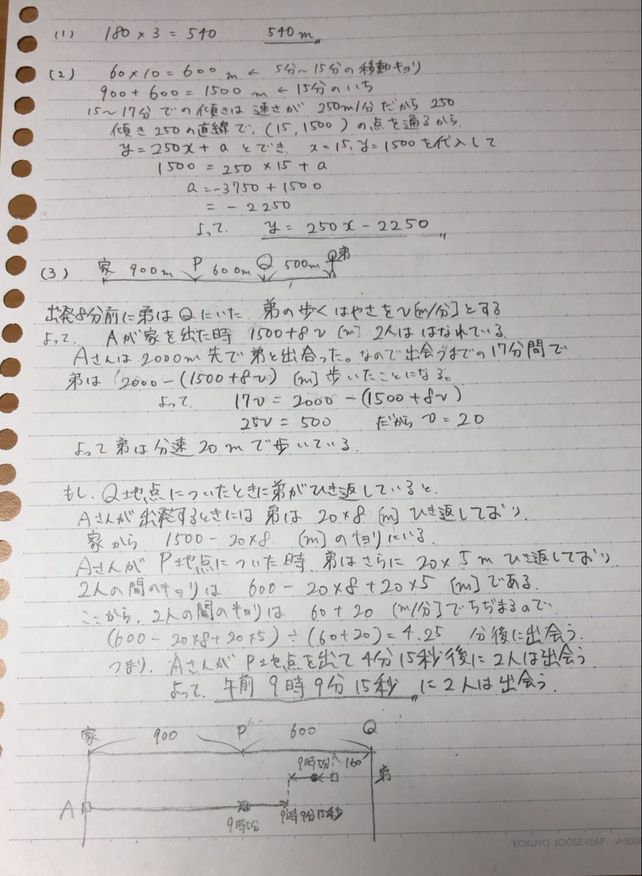 (1) 180×3=540 540m〃
(2) 60×10=600 m ← 5分〜15分の移動キョリ
900+600=1500 m ← 15分のいち
15〜17分での傾きは速さが 250m/分だから 250
傾き250の直線で、(15,1500)の点を通るから
y=250x+a とでき、x=15, y=1500を代入して
1500=250×15+a
a=-3750+1500
=-2250
よって y=250x-2250〃
(3) 家 900m P 600m Q 500m 弟
出発8分前に弟はQにいた 弟の歩くはやさをv[m/分]とする
よって Aが家を出た時 1500+8v [m] 2人ははなれている
Aさんは2000m先で弟と出合った。なので出会うまでの17分間で
弟は 2000-(1500+8v) [m] 歩いたことになる。
よって 17v=2000-(1500+8v)
25v=500 だから v=20
よって弟は分速20mで歩いている
もし、Q地点についたときに弟がひき返していると、
Aさんが出発するときには 弟は 20×8 [m] ひき返しており
家から 1500-20×8 [m]のキョリにいる
AさんがP地点についた時、弟はさらに20×5mひき返しており
2人の間のキョリは 600-20×8+20×5 [m]である
ここから、2人の間のキョリは 60+20 [m/分]でちぢまるので
(600-20×8+20×5)÷(60+20)=4.25 分後に出会う
つまり、AさんがP地点を出て4分15秒後に2人は出会う
よって、午前9時9分15秒〃に2人は出会う
家 900 P 600 Q
9時5分 160 弟
A
9時5分 9時9分15秒
KOKUYO LOOSE-LEAF